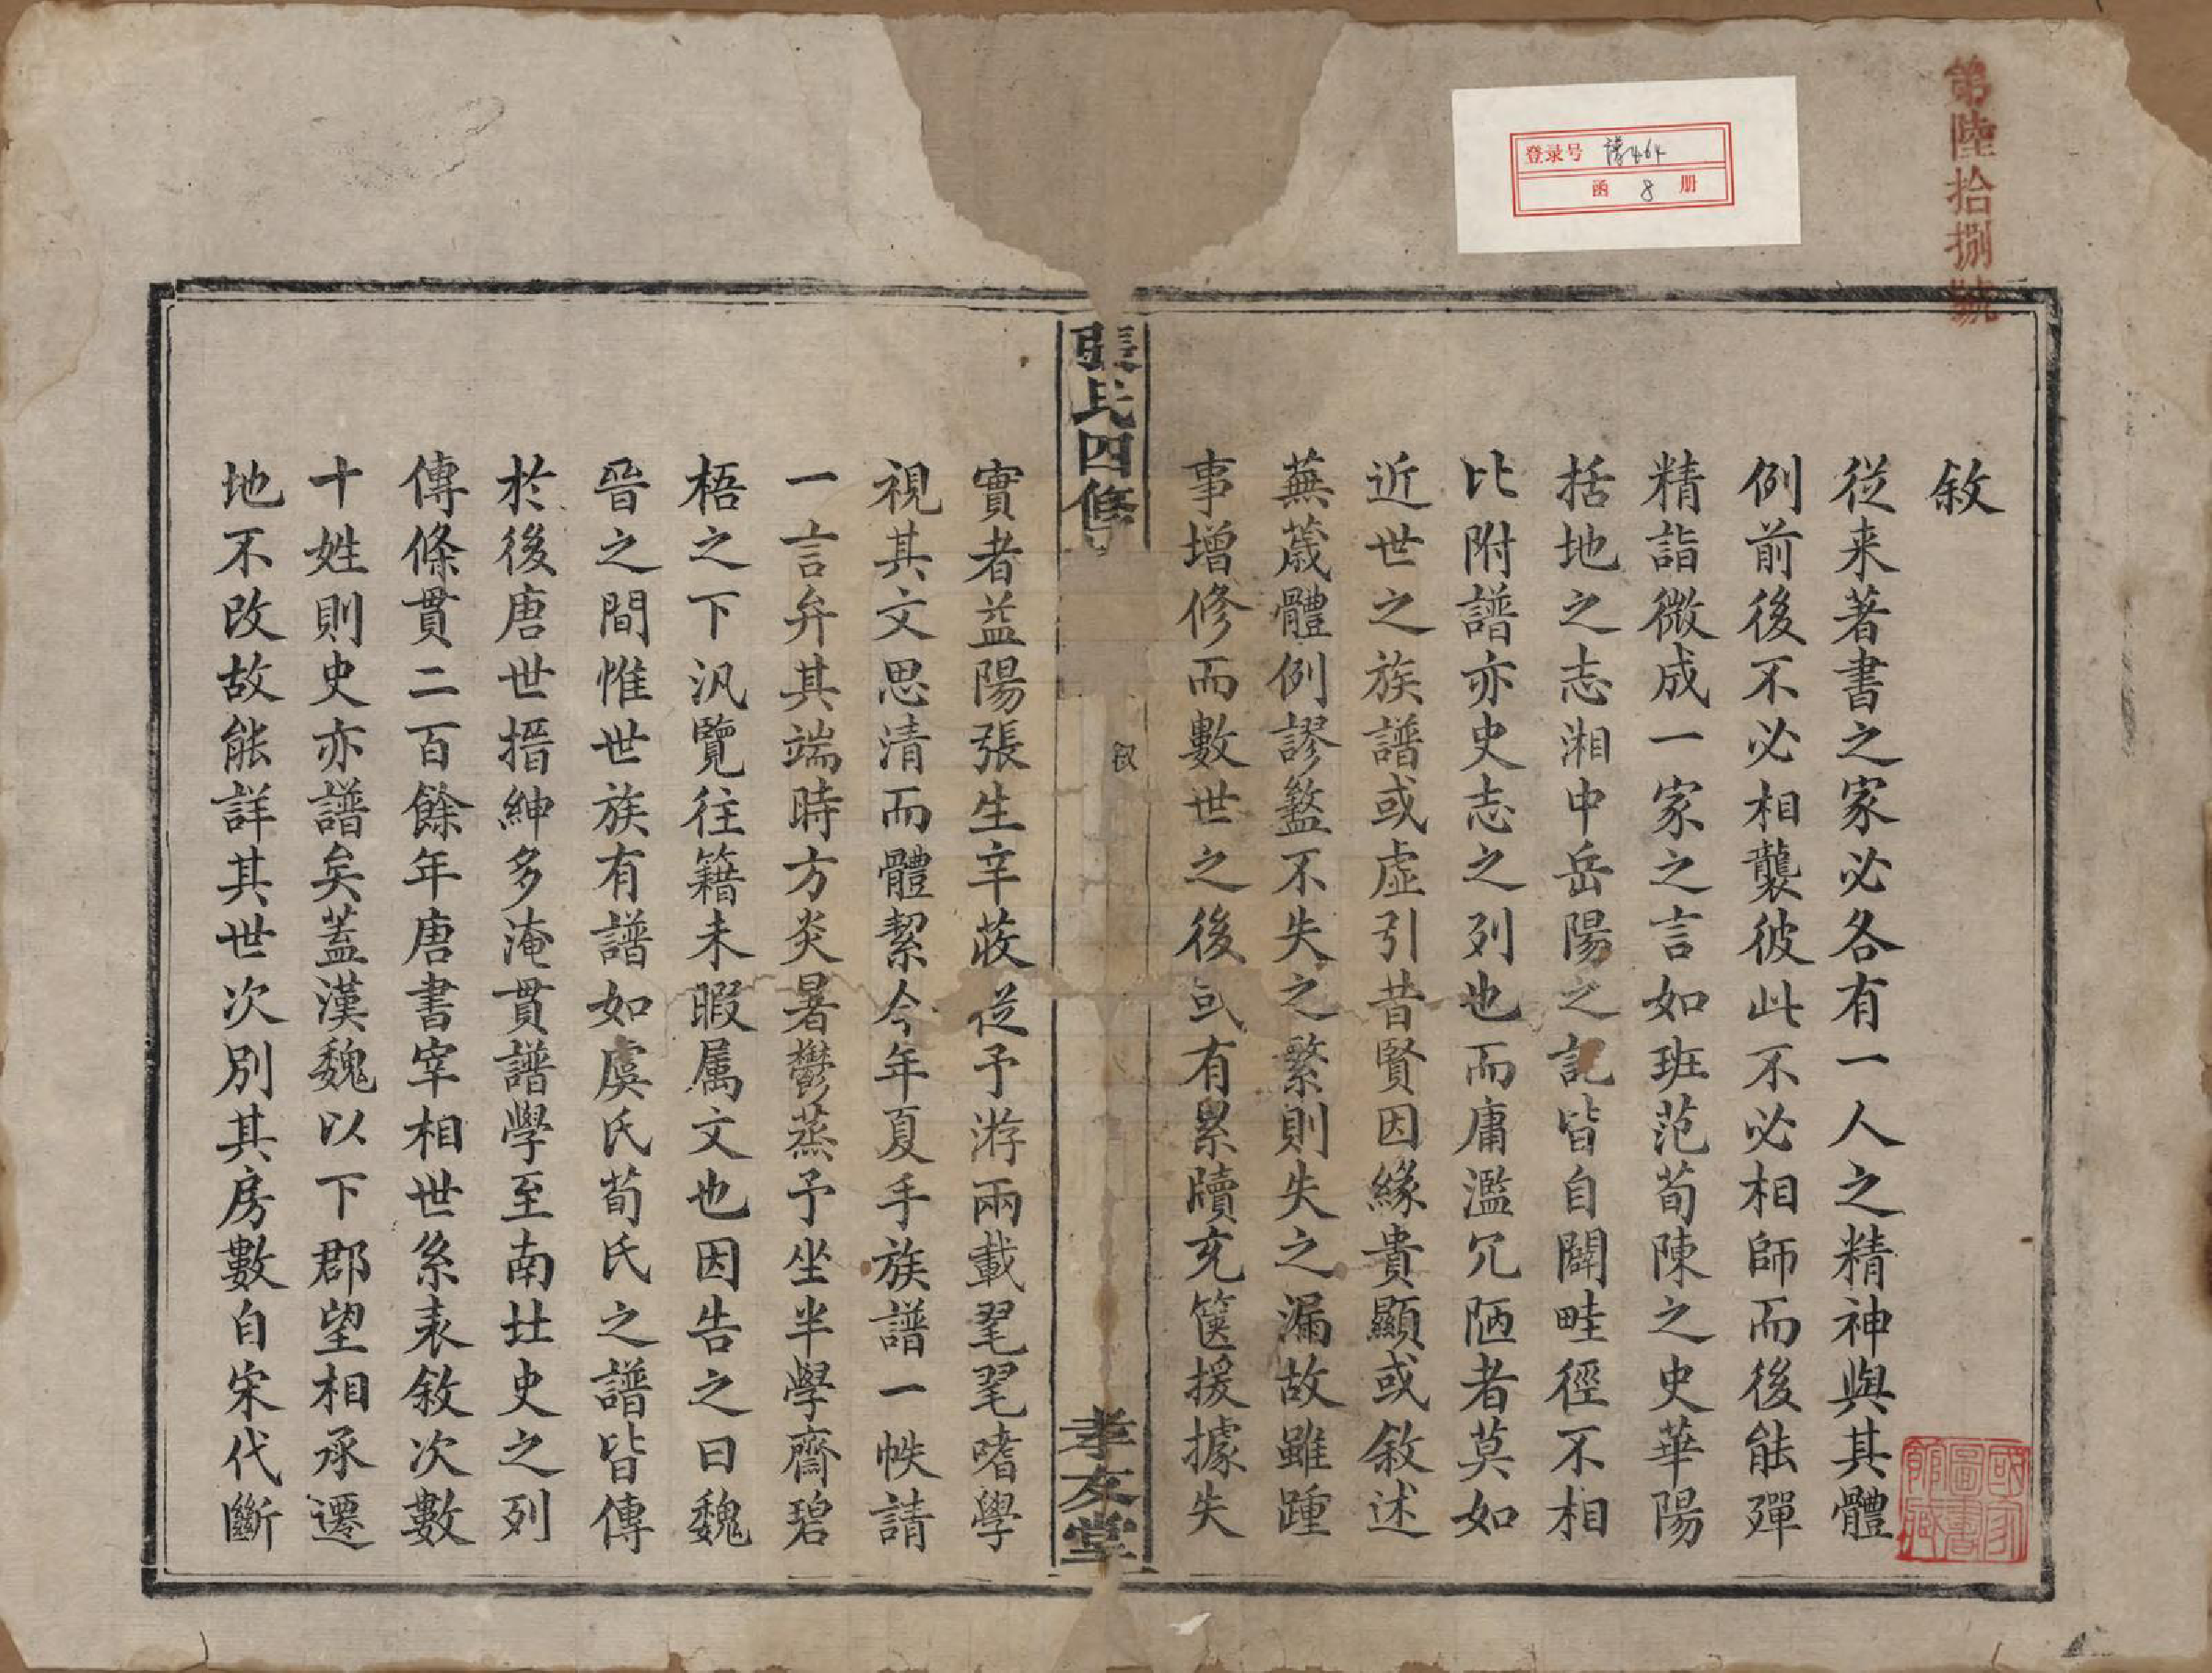 第陸拾捌號
登录号 譜464
函 8 册
敘
從来著書之家必各有一人之精神與其體
例前後不必相襲彼此不必相師而後能殫
精詣微成一家之言如班范荀陳之史華陽
括地之志湘中岳陽之記皆自闢畦徑不相
比附譜亦史志之列也而庸濫冗陋者莫如
近世之族譜或虛引昔賢因緣貴顯或敘述
蕪薉體例謬盭不失之繁則失之漏故雖踵
事增修而數世之後或有累牘充篋援據失
張氏四修
敘
孝友堂
實者益陽張生辛莈從予游兩載毣毣嗜學
視其文思清而體絜今年夏手族譜一帙請
一言弁其端時方炎暑鬱蒸予坐半學齋碧
梧之下汎覽往籍未暇属文也因告之曰魏
晉之間惟世族有譜如虞氏荀氏之譜皆傳
於後唐世搢紳多淹貫譜學至南北史之列
傳條貫二百餘年唐書宰相世系表敘次數
十姓則史亦譜矣蓋漢魏以下郡望相承遷
地不改故能詳其世次別其房數自宋代斷
國家圖書館藏